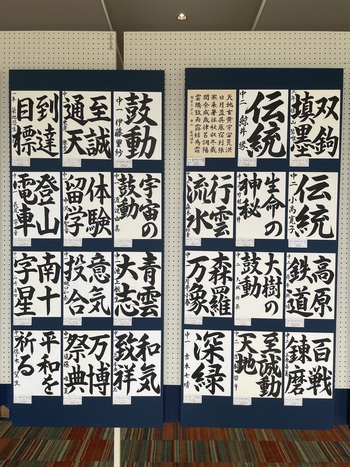 双鉤
塡墨
伝統
天地玄黄宇宙洪荒
日月盈昃辰宿列張
寒来暑往秋収冬蔵
閏余成歳律呂調陽
雲騰致雨露結為霜
伝統
生命の
神秘
行雲
流水
高原
鉄道
大樹の
鼓動
森羅
万象
百戦
錬磨
至誠動
天地
深緑
鼓動
中一 伊藤里紗
至誠
通天
到達
目標
宇宙の
鼓動
体験
留学
登山
電車
青雲
大志
意気
投合
南十
字星
和気
致祥
万博
祭典
平和を
祈る